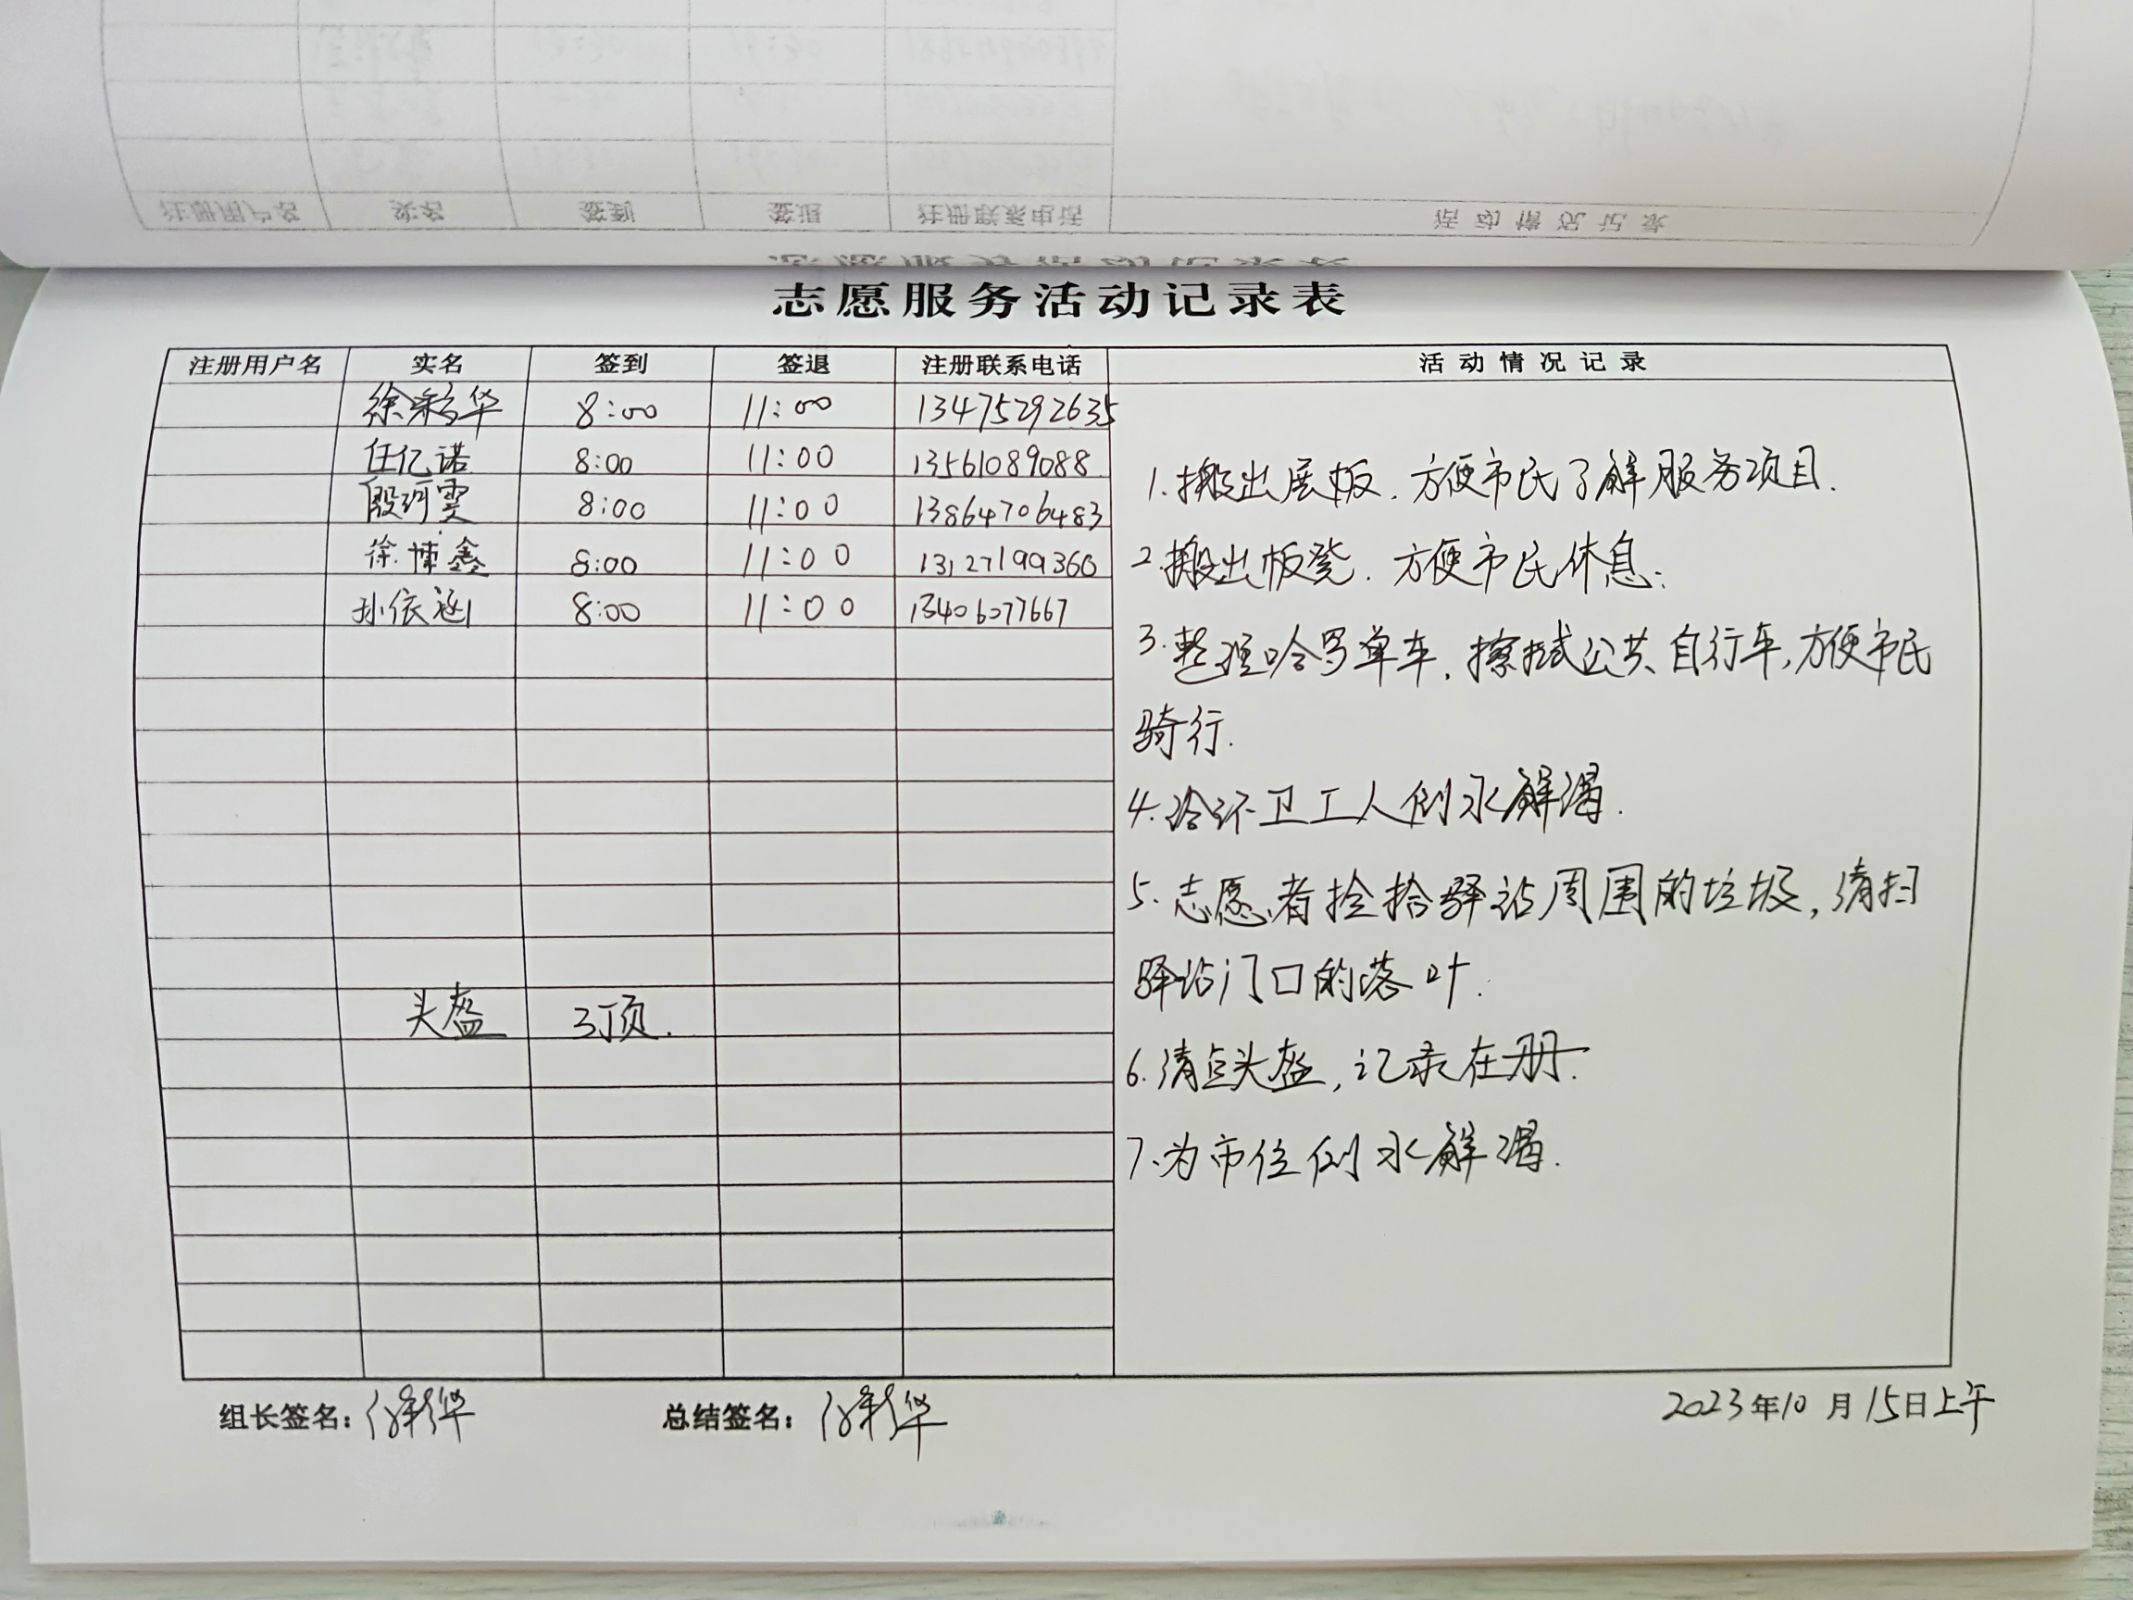 志愿服务活动记录表
注册用户名 实名 签到 签退 注册联系电话 活动情况记录
徐彩华 8:00 11:00 13475292635
任亿诺 8:00 11:00 13561089088
殷珂雯 8:00 11:00 13864706483
徐博鑫 8:00 11:00 13127199360
孙依涵 8:00 11:00 13406077667
头盔 3顶.
1.搬出展板.方便市民了解服务项目.
2.搬出板凳.方便市民休息;
3.整理哈罗单车.擦拭公共自行车,方便市民
骑行.
4.给环卫工人倒水解渴.
5.志愿者捡拾驿站周围的垃圾,清扫
驿站门口的落叶.
6.清点头盔,记录在册.
7.为市位倒水解渴.
组长签名:徐彩华 总结签名:徐彩华 2023年10月15日上午